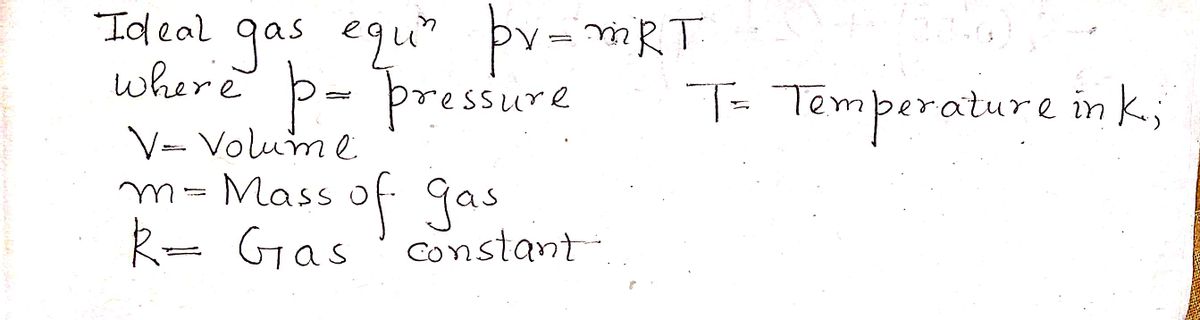 Ideal gas equⁿ pv = mRT
where p = pressure T = Temperature in k;
V = Volume
m = Mass of gas
R = Gas constant